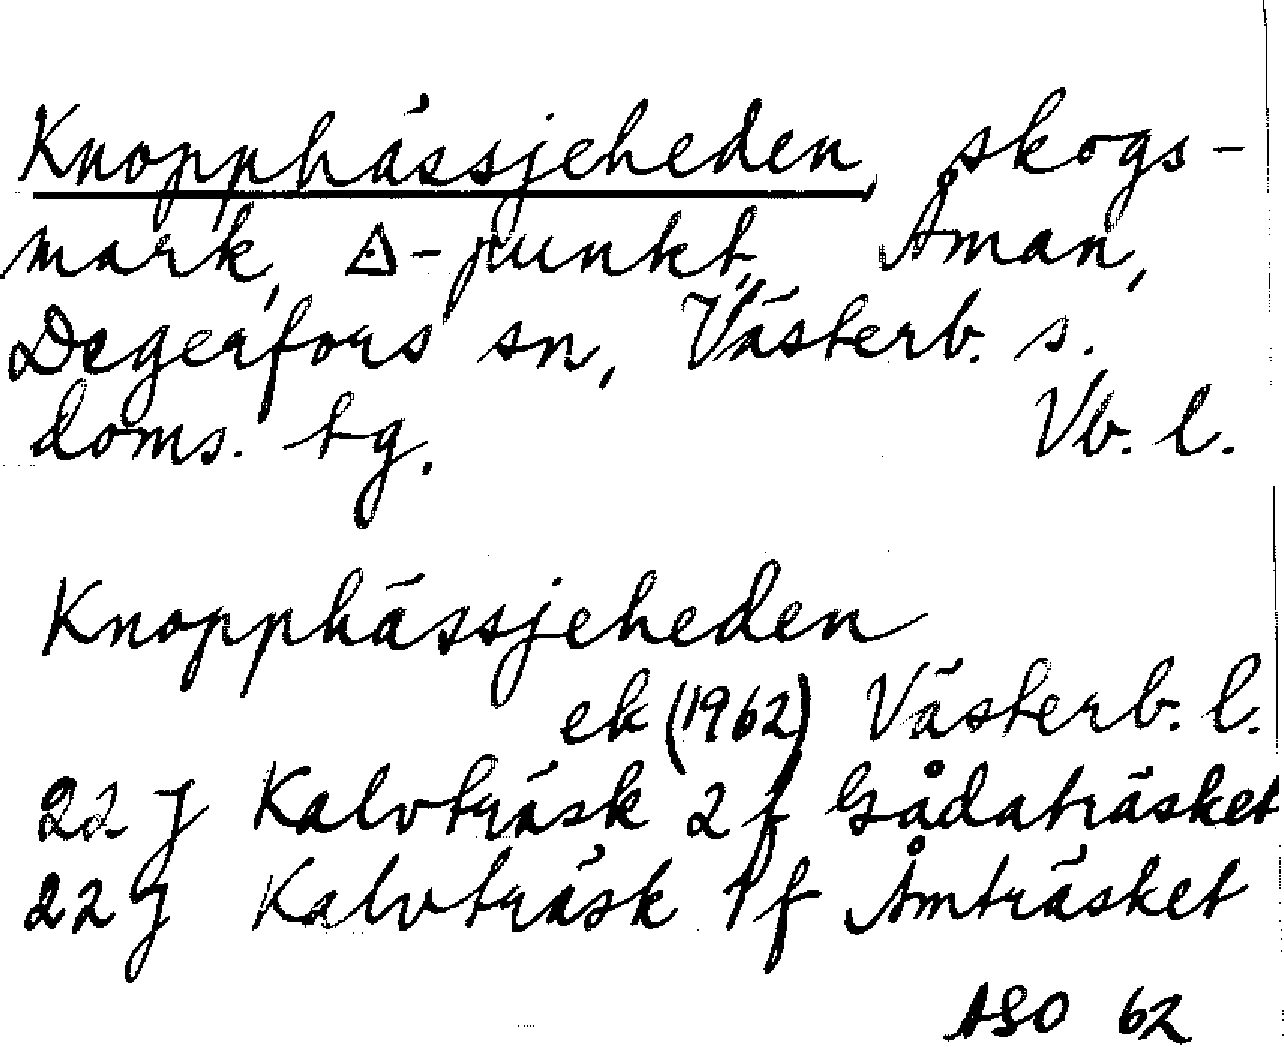 Knopphässjeheden, skogs-
mark, △-punkt, Åman,
Degerfors sn, Västerb. s.
doms. tg. Vb. l.
Knopphässjeheden
ek (1962) Västerb. l.
22 J Kalvträsk 2 f Gådaträsket
22 J Kalvträsk 1 f Åmträsket
ASO 62